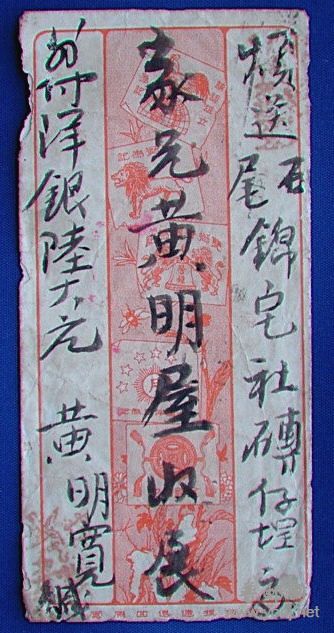 煩送石尾錦宅社磚仔埕交
家兄黃明屋收展
外付洋銀陸大元 黃明寬緘